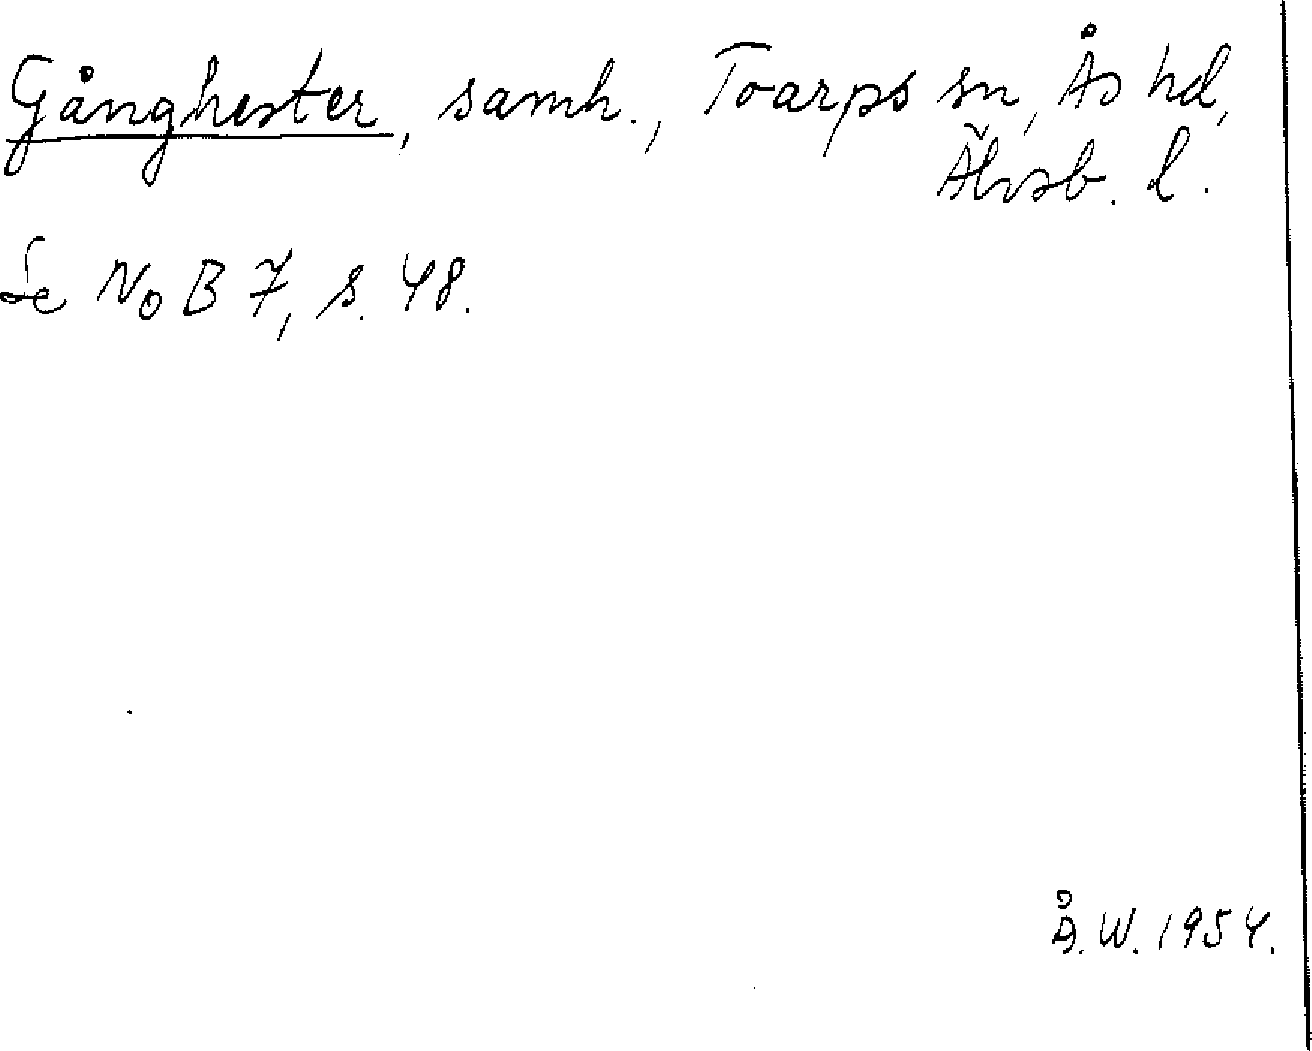 Gånghester, samh., Toarps sn, Ås hd,
Älvsb. l.
Se NoB 7, s. 48.
Å.W. 1954.